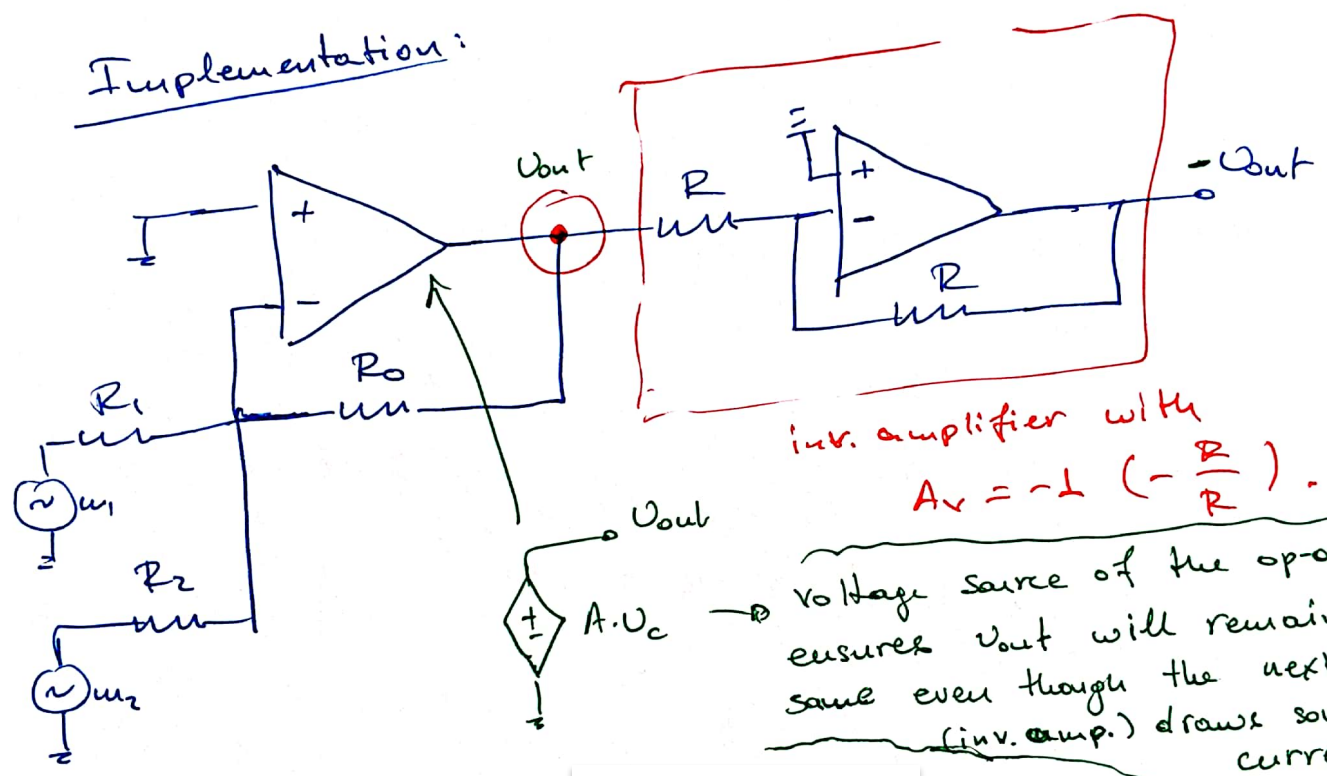 Implementation:
Uout
R
+
-
- Uout
+
-
R
R0
R1
~ m1
R2
~ m2
inv. amplifier with
Av = -1 (- R/R).
Uout
± A.Uc
→ voltage source of the op-a
ensures Uout will remain
same even though the next
(inv. amp.) draws so
curre